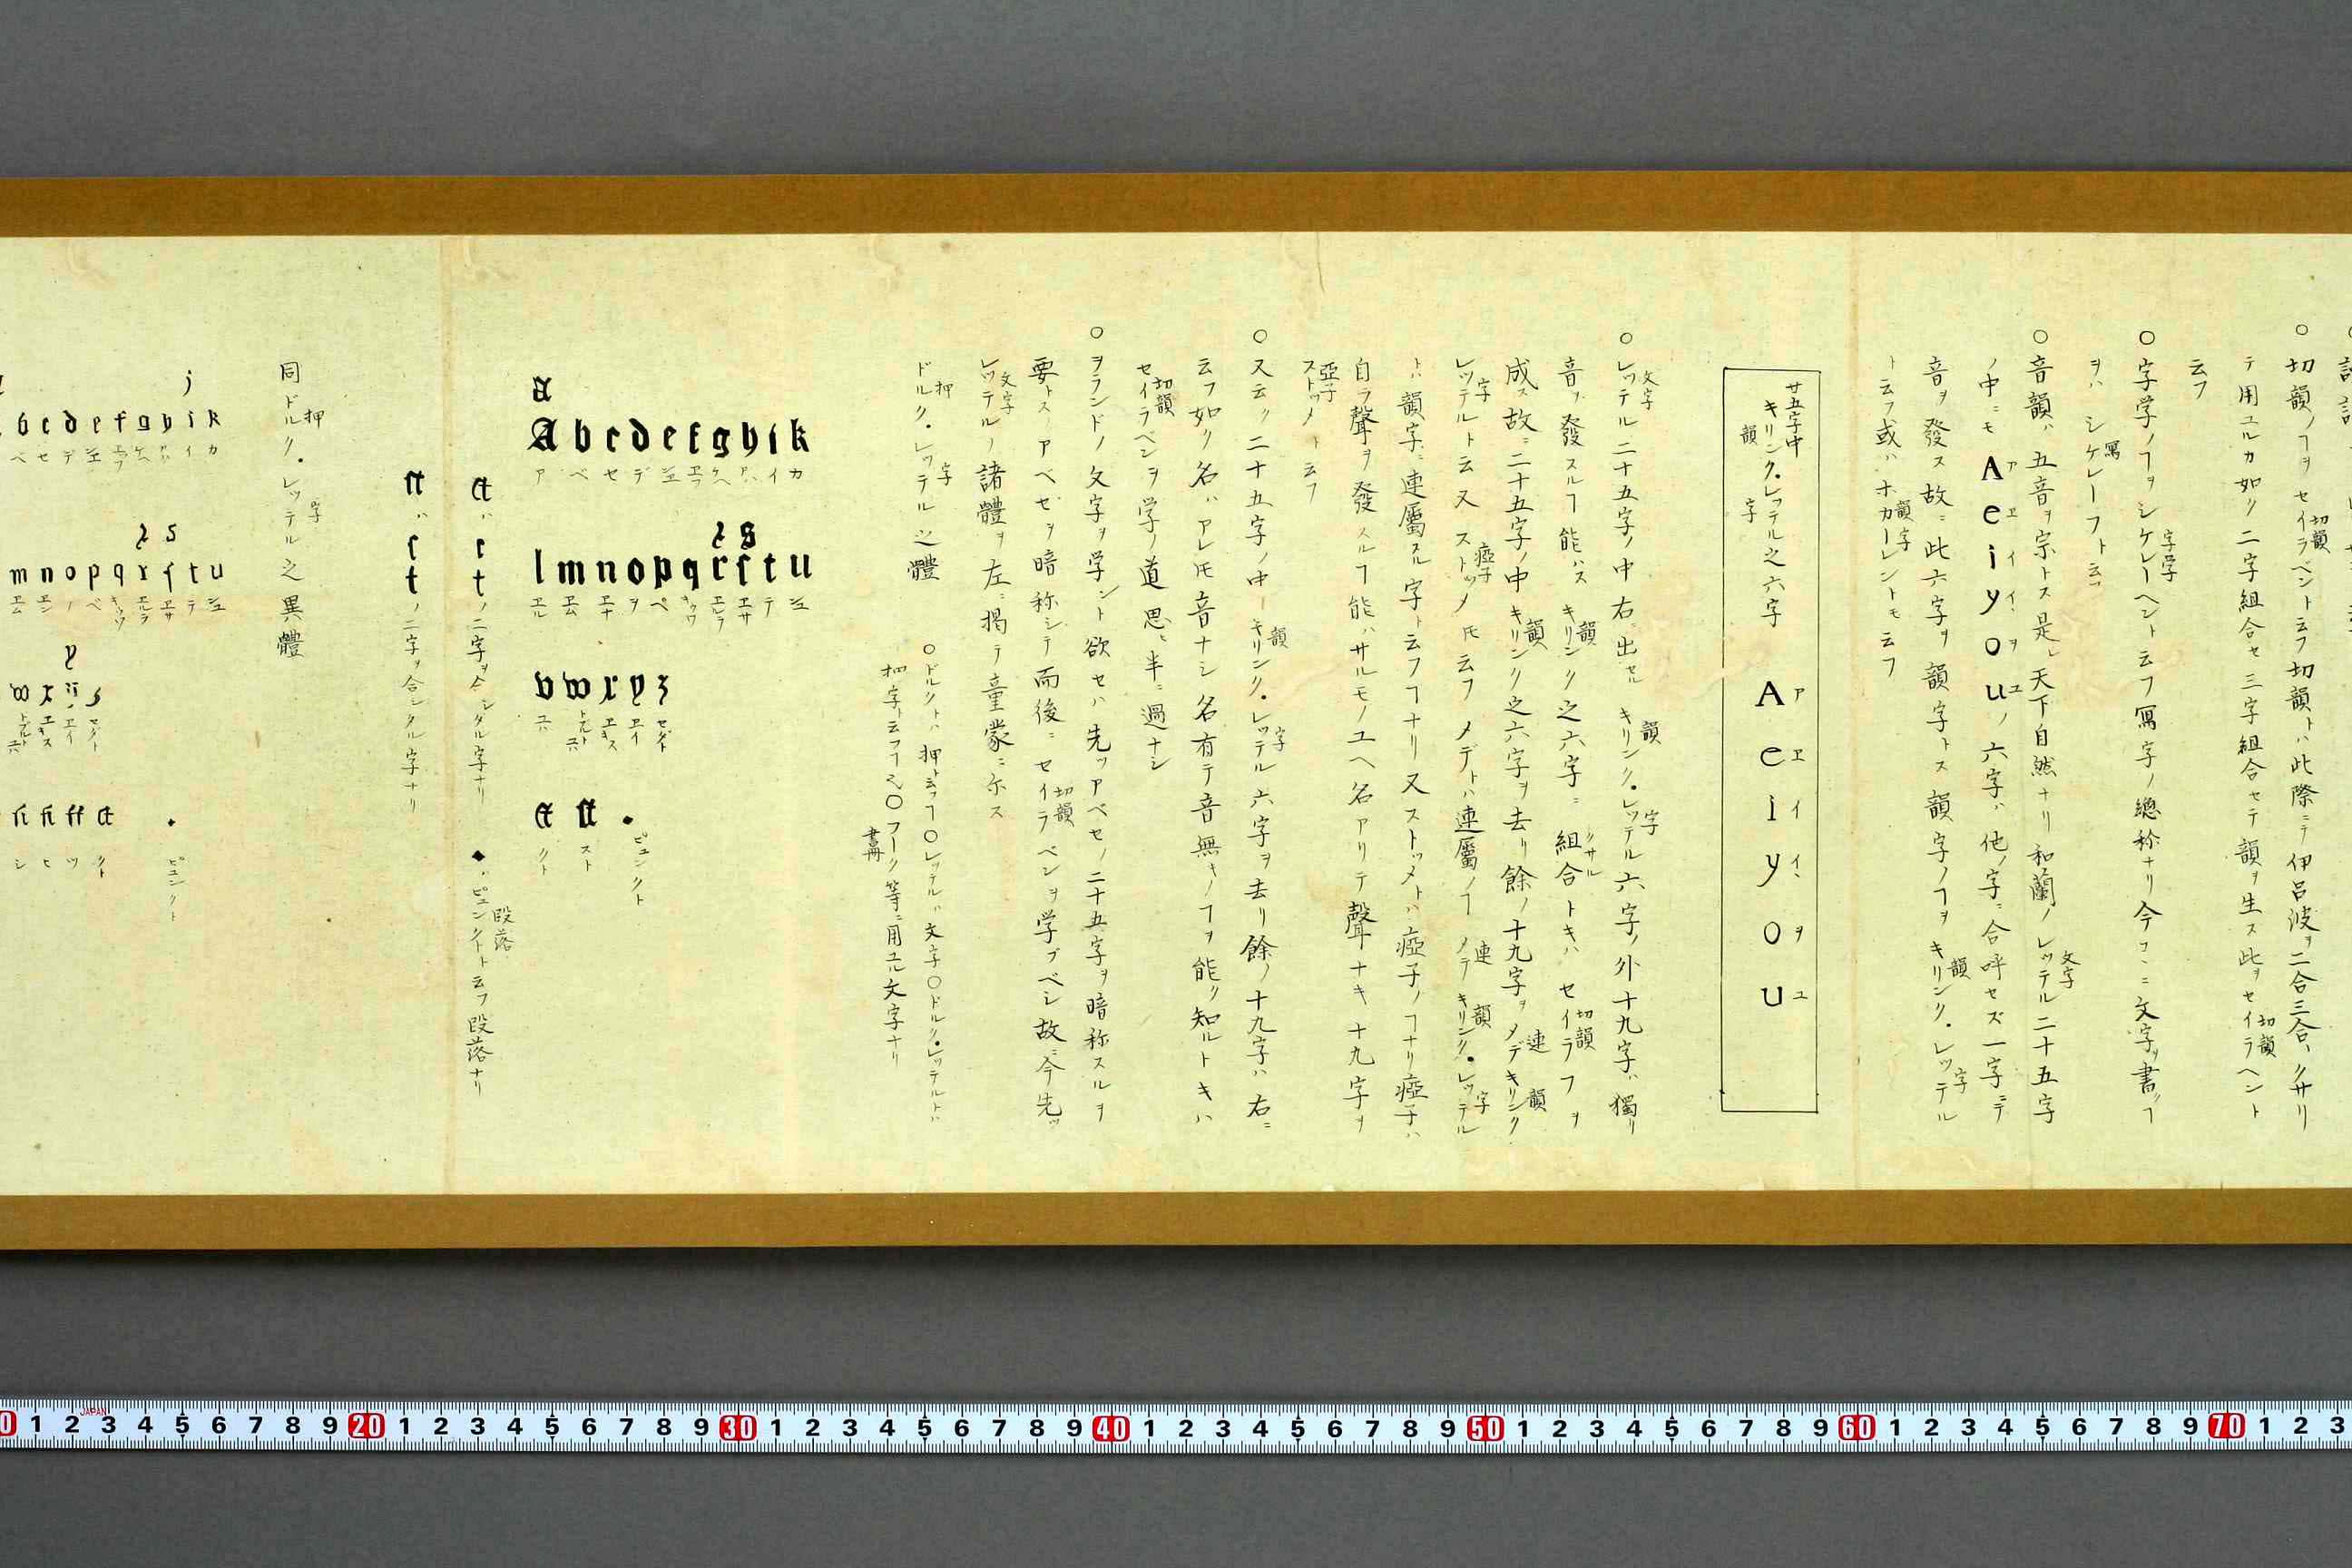 ○切韻ノヿヲセイラベント云フ切韻トハ此際ニテ伊呂波ヲ二合三合、クサリ
切韻
テ用ユルカ如ク二字組合セ三字組合セテ韻ヲ生ス此ヲセイラヘント
切韻
云フ
○字学ノヿヲシケレーヘント云フ冩字ノ總称ナリ今コヽニ文字ヲ書ヿ
字学
ヲハシケレーフト云フ
冩
○音韻ハ五音ヲ宗トス是レ天下自然ナリ和蘭ノレッテル二十五字
文字
ノ中ニモAeiyouノ六字ハ他ノ字ニ合呼セズ一字ニテ
アヱイイヲユ
音ヲ發ス故ニ此六字ヲ韻字トス韻字ノヿヲキリンク・レッテル
韻 字
ト云フ或ハホカーレントモ云フ
韻字
廿五字中
キリンク・レッテル之六字 A e i y o u
韻 字
ア ヱ イ イ ヲ ユ
○レッテル二十五字ノ中右ニ出セルキリンク・レッテル六字ノ外十九字ハ獨リ
文字 韻 字
音ヲ發スルヿ能ハスキリンク之六字ニ組合トキハセイラフヲ
韻 クサル 切韻
成ス故ニ二十五字ノ中キリンク之六字ヲ去リ餘ノ十九字ヲメデキリンク
韻 連 韻
レッテルト云又ストッメ𪜈云フメデトハ連屬ノヿメデキリンク・レッテル
字 瘂子 連 韻 字
トハ韻字ニ連屬スル字ト云フヿナリ又ストッメトハ瘂子ノヿナリ瘂子ハ
自ラ聲ヲ發スルヿ能ハサルモノユヘ名アリテ聲ナキ十九字ヲ
ストッメト云フ
亞子
○又云ク二十五字ノ中キリンク・レッテル六字ヲ去リ餘ノ十九字ハ右ニ
韻 字
云フ如ク名ハアレ𪜈音ナシ名有テ音無キノヿヲ能ク知ルトキハ
セイラベンヲ学ノ道思ヒ半ニ過ナシ
切韻
○ヲランドノ文字ヲ学ント欲セハ先ッアベセノ二十五字ヲ暗称スルヲ
要トスアベセヲ暗称シテ而後ニセイラベンヲ学ブベシ故ニ今先ッ
切韻
レッテルノ諸體ヲ左ニ掲テ童蒙ニ尓ス
文字
ドルク・レッテル之體
押 字
○ドルクトハ押ト云フヿ○レッテルハ文字○ドルク・レッテルトハ
押字ト云フヿ也○フーク等ニ用ユル文字ナリ
書冊
a
A b c d e f g h i k
ア ベ セ デ ヱ ヱフ ゲヘ ハア イ カ
ꝛ s
l m n o p q r ſ t u
ヱル ヱム ヱナ ヲ ペ キウ ヱルラ ヱサ テ ユ
v w x y z
ct st .
クト スト ピュンクト
ctハctノ二字ヲ合シタル字ナリ
◆・ピュンクトト云フ段落ナリ
段落
ſtハſtノ二字ヲ合シタル字ナリ
同ドルク・レッテル之異體
押 字
j
b c d e f g h i k
ベ セ デ ヱ ヱフ ゲヘ ハア イ カ
ꝛ s
m n o p q r ſ t u
y
w x ij z
ſi ſſ ff ct .
シ ヒ ツ クト ピュンクト